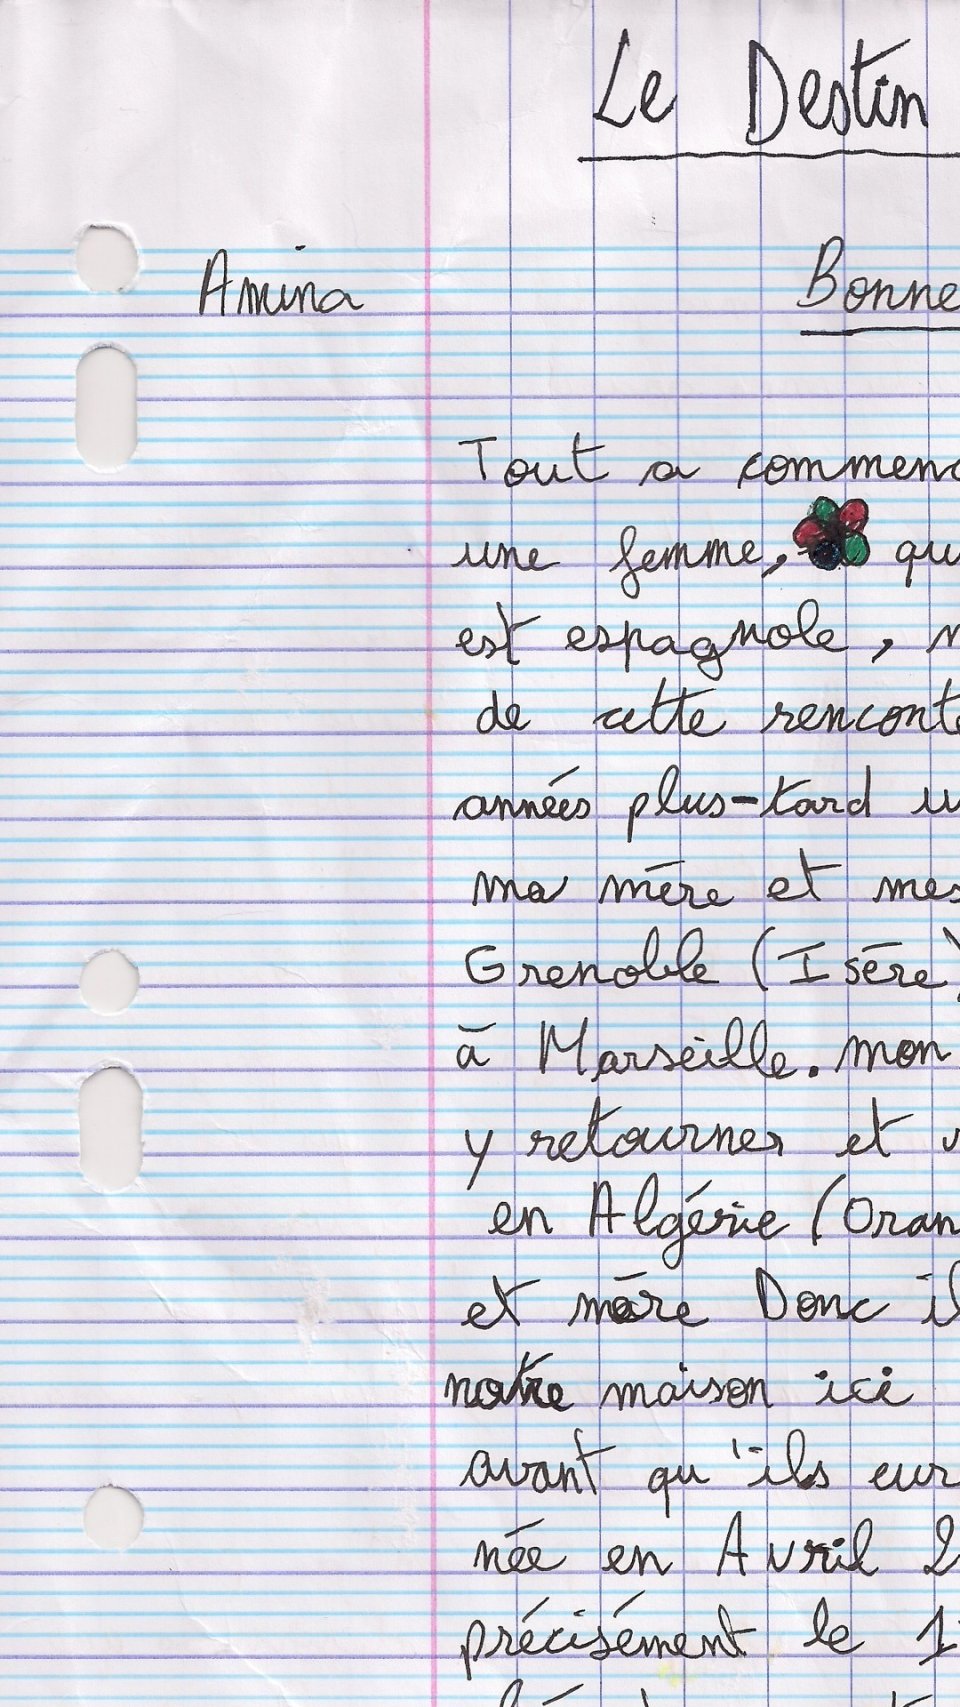 Le Destin
Amina Bonne
Tout a commenc
une femme, qu
est espagnole, m
de cette rencont
années plus-tard u
ma mère et mes
Grenoble (Isère)
à Marseille. mon
y retourner et
en Algérie (Oran
et mère Donc il
notre maison ici
avant qu'ils eur
née en Avril 2
précisément le 1